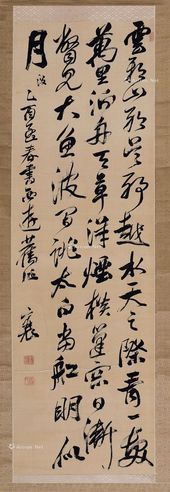 雲耶山耶呉耶越水天之際青一髪
萬里泊舟天草洋煙横篷窓日漸
瞥見大魚波間跳太白當船明似
月 没 乙酉春書西遊舊
襄